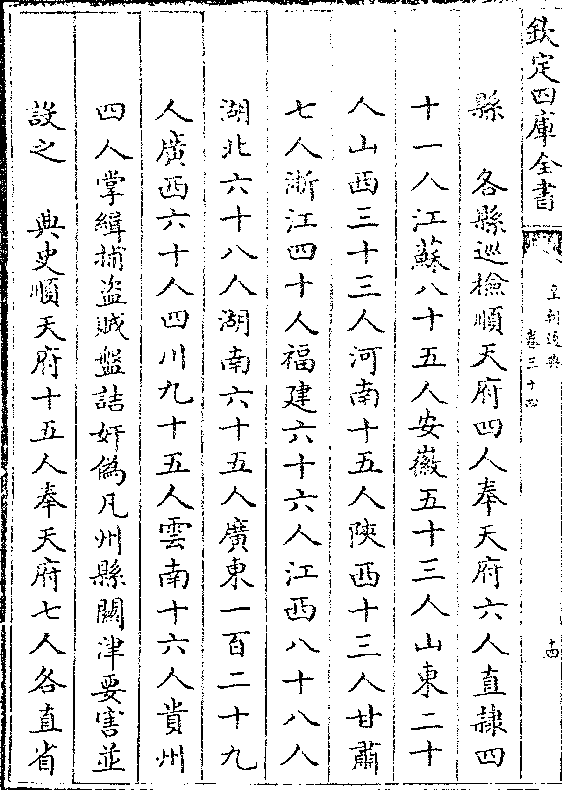 欽定四庫全書
皇朝通典
卷三十四
十四
縣　各縣巡檢順天府四人奉天府六人直隷四
十一人江蘇八十五人安徽五十三人山東二十
人山西三十三人河南十五人陜西十三人甘肅
七人浙江四十人福建六十六人江西八十八人
湖北六十八人湖南六十五人廣東一百二十九
人廣西六十人四川九十五人雲南十六人貴州
四人掌緝捕盜賊盤詰奸偽凡州縣關津要害並
設之　典史順天府十五人奉天府七人各直省